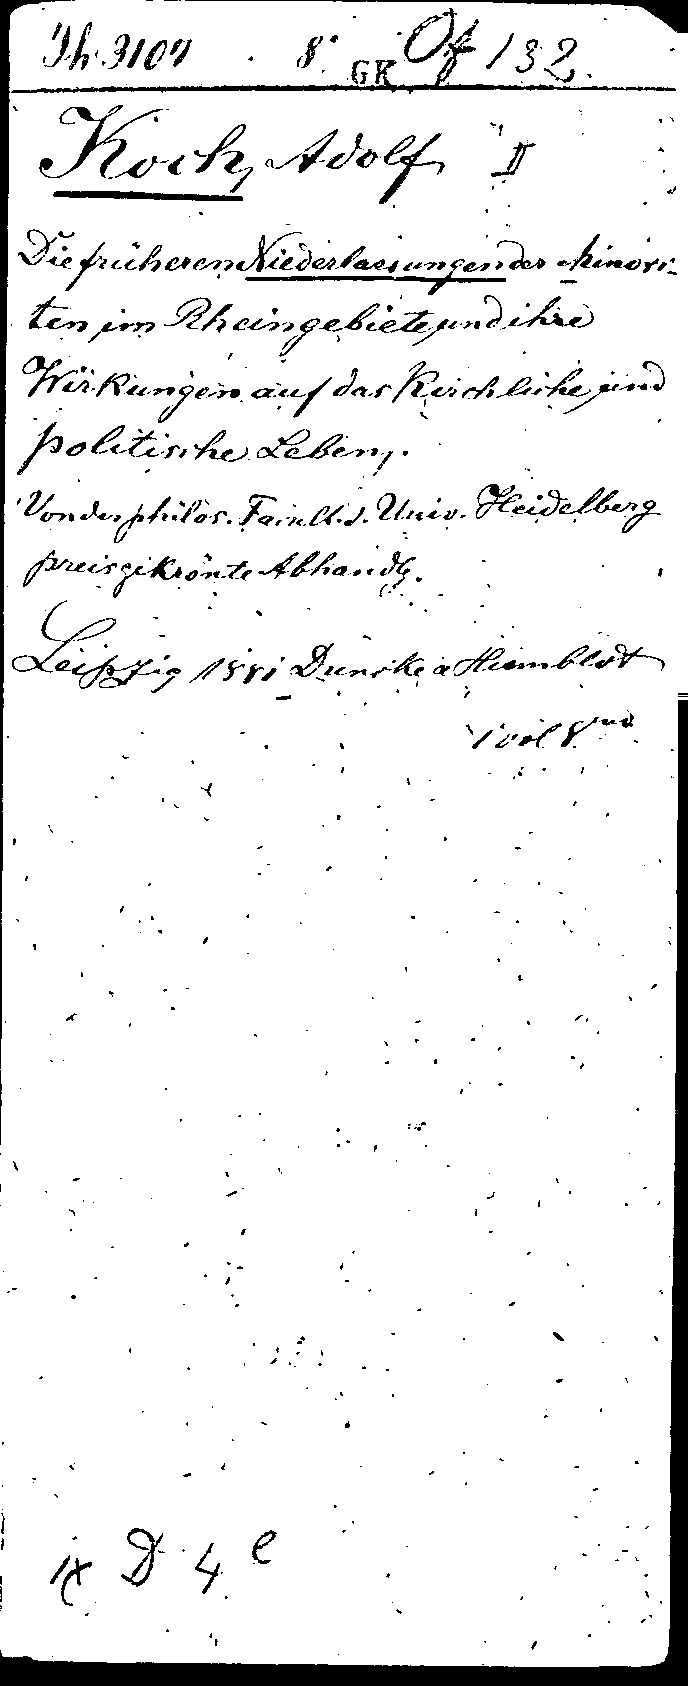 Th. 3107 8° GK Of 132.
Koch, Adolf II
Die früheren Niederlassungen der Minori-
ten im Rheingebiete und ihre
Wirkungen auf das Kirchliche und
politische Leben.
Von der philos. Facult. d. Univ. Heidelberg
preisgekrönte Abhandlg.
Leipzig 1881 Duncker & Humblot
1 vol 8vo
IX D 4 e